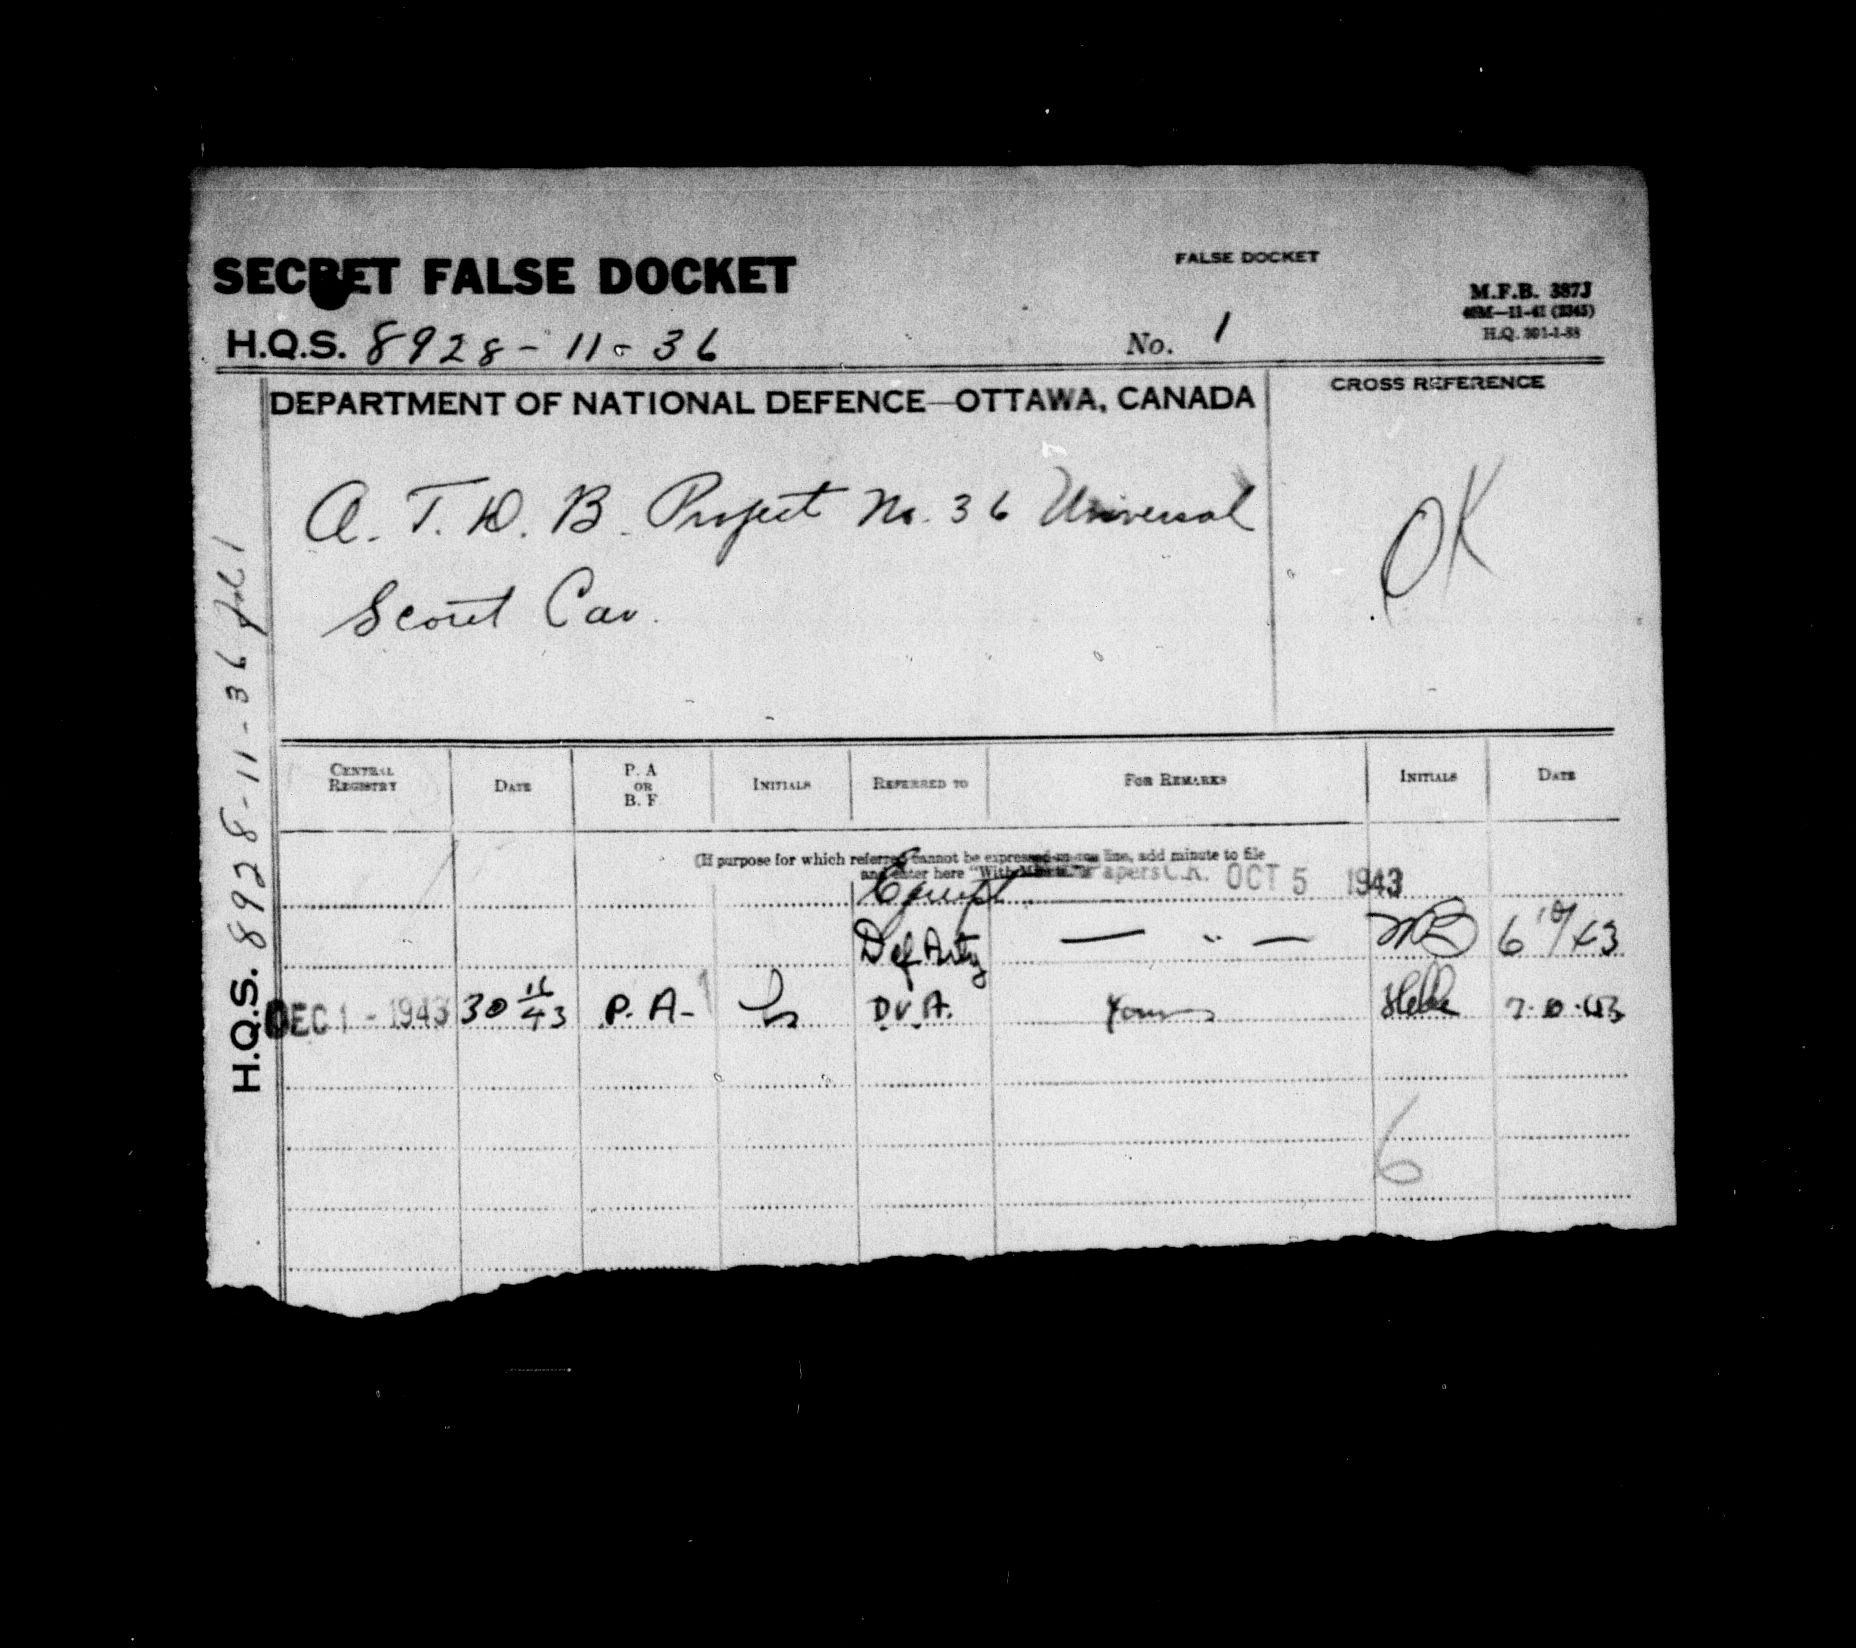 FALSE DOCKET
SECRET FALSE DOCKET
M.F.B. 387J
40M—11-41 (2345)
H.Q. 301-1-88
H.Q.S. 8928-11-36
No. 1
DEPARTMENT OF NATIONAL DEFENCE—OTTAWA, CANADA
CROSS REFERENCE
A. T. D. B. Project No. 36 Universal
Scout Car.
OK
H.Q.S. 8928-11-36 fol. 1
CENTRAL REGISTRY DATE P. A OR B. F INITIALS REFERRED TO FOR REMARKS INITIALS DATE
(If purpose for which referred cannot be expressed on one line, add minute to file
and enter here "With Minute."
Papers C.R. OCT 5 1943
Equipt
Def Arty — " — 6 10/43
DEC 1 - 1943 30 11/43 P. A- D.V.A. 7.10.43
6